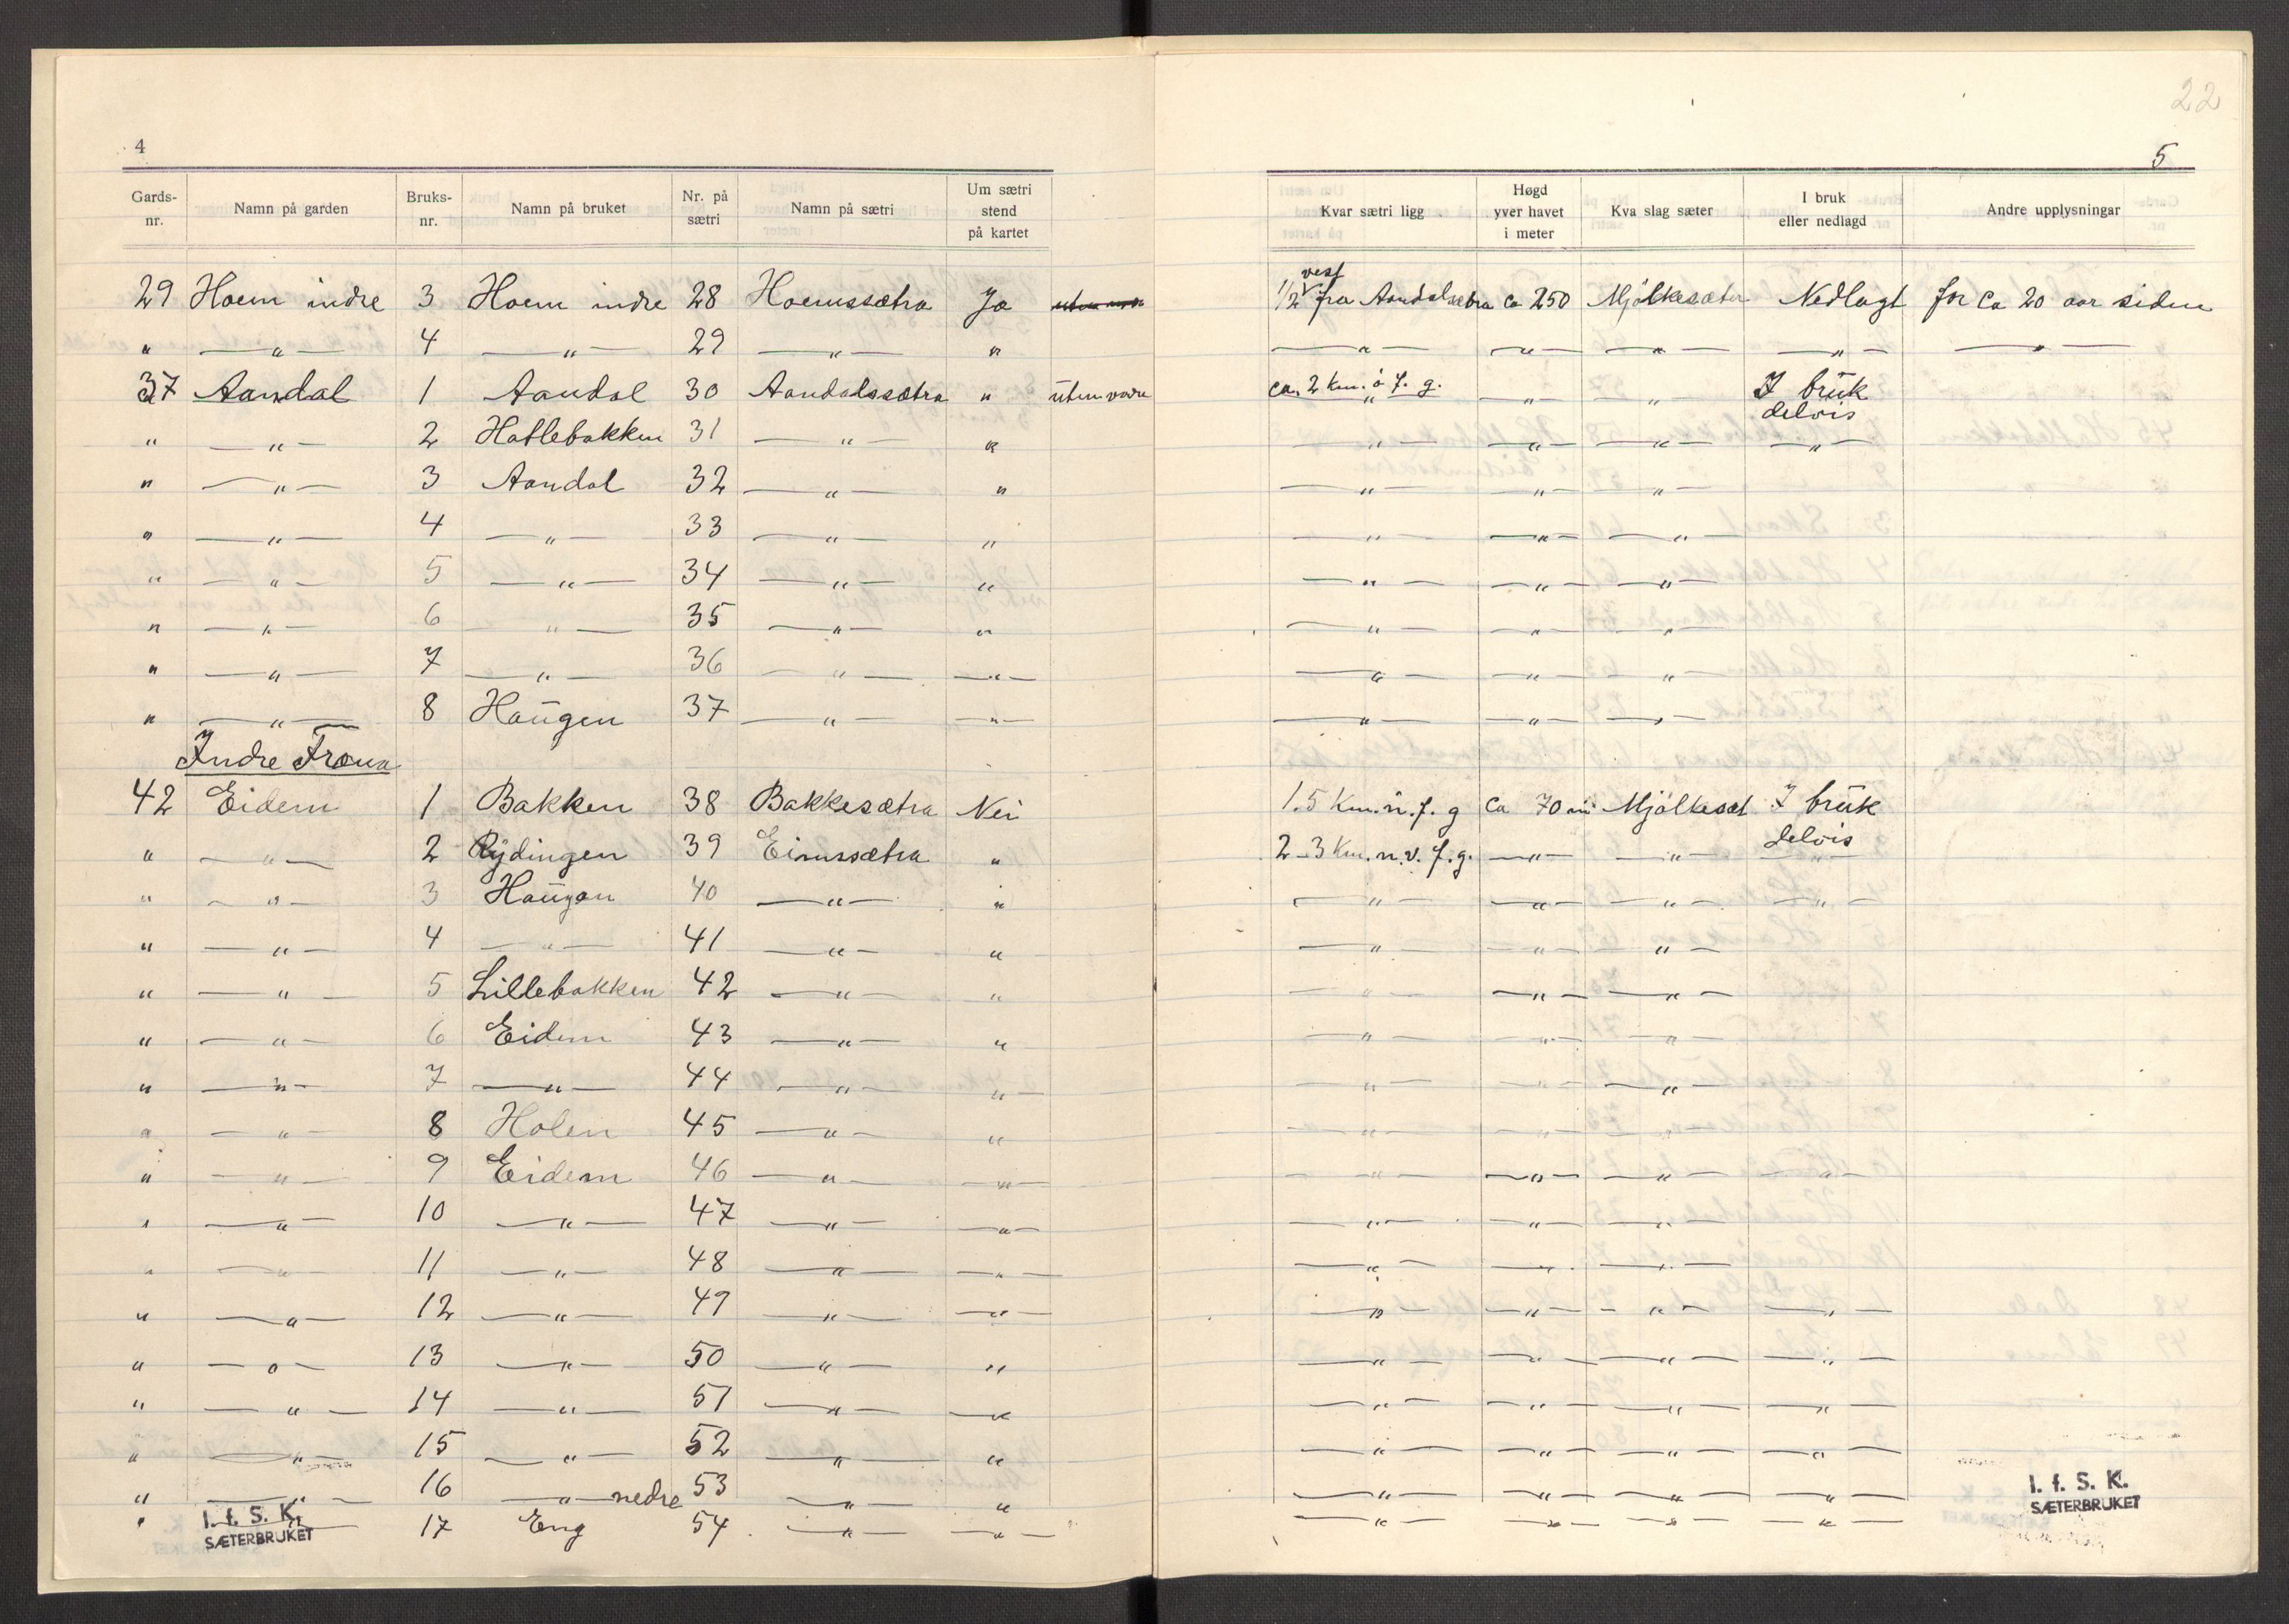 22
4
5
Gards-nr. Namn på garden Bruks-nr. Namn på bruket Nr. på sætri Namn på sætri Um sætri stend på kartet
Kvar sætri ligg Høgd yver havet i meter Kva slag sæter I bruk eller nedlagd Andre upplysningar
29 Hoem indre 3 Hoem indre 28 Hoemssætra Ja 1/2 vest fra Aandalsætra ca 250 Mjölkesæter Nedlagt for ca 20 aar siden
" —"— 4 —"— 29 —"— " —"— —"— —"— —"— —"—
37 Aandal 1 Aandal 30 Aandalssætra " uten vøre ca. 2 km. ö. f. g. —"— " I brük delvis
" —"— 2 Hatlebakken 31 —"— " —"— —"— —"— —"—
" —"— 3 Aandal 32 —"— " —"— —"— —"—
" —"— 4 —"— 33 —"— " —"— —"— —"—
" —"— 5 —"— 34 —"— " —"— —"— —"—
" —"— 6 —"— 35 —"— " —"— —"— —"—
" —"— 7 —"— 36 —"— —"— —"— —"— —"—
" —"— 8 Haügen 37 —"— —"— —"— —"— —"—
Indre Fræna
42 Eidem 1 Bakken 38 Bakkesætra Nei 1.5 Km. n. f. g ca 70 m Mjölkesæt I brük delvis
" —"— 2 Rydingen 39 Eimssætra " 2-3 Km. n. v. f. g. —"— —"— —"—
" —"— 3 Haügen 40 —"— " —"— —"— —"— —"—
" —"— 4 —"— 41 —"— " —"— —"— —"—
" —"— 5 Lillebakken 42 —"— " —"— —"— —"—
" —"— 6 Eidem 43 —"— " —"— —"— —"—
" —"— 7 —"— 44 —"— —"— —"— —"— —"—
" —"— 8 Holen 45 —"— " —"— —"— —"—
" —"— 9 Eidem 46 —"— —"— —"— —"— —"— —"—
" —"— 10 —"— 47 —"— —"— —"— —"— —"—
" —"— 11 —"— 48 —"— —"— —"— —"— —"—
" —"— 12 —"— 49 —"— —"— —"— —"— —"— —"—
" —"— 13 —"— 50 —"— " —"— —"— —"— —"—
" —"— 14 —"— 51 —"— —"— —"— —"— —"— —"—
" —"— 15 —"— 52 —"— " —"— —"— —"— —"—
" —"— 16 —"— nedre 53 —"— " —"— —"— —"— —"—
" —"— 17 Eng 54 —"— —"— —"— —"— —"— —"—
I. f. S. K.
SÆTERBRUKET
I. f. S. K.
SÆTERBRUKET